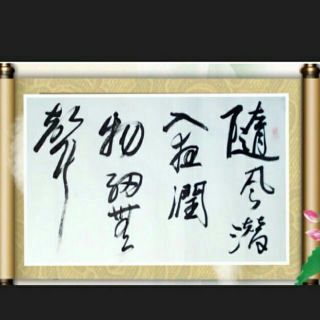 隨風潛
入夜潤
物細無
聲